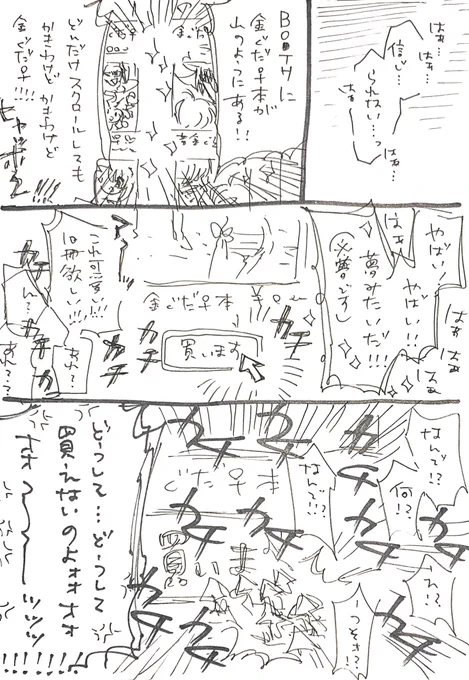 はぁ…
はぁ…
信じ…
られない…っ
はぁ…
はぁ…
BOOTHに
金ぐだ♀本が
山のようにある!!
どんだけスクロールしても
かきわけど
かきわけど
金ぐだ♀!!!
ヒャッホー
やばい!
やばい!!
夢みたいだ!!!
(※夢です)
はぁ
はぁ
はぁ
はぁ
金ぐだ♀本
買います
カチ
カチ
カチ
カチ
これ可愛い!!!
10冊欲しい!!!
ん…
あれ?
あれ??
なんで!?
何!?
なんで!?
え!?
うそ!?
ぐだ♀本
買いま
カチ
カチ
カチ
カチ
カチ
カチ
カチ
カチ
カチ
どーして…どーして
買えないのよォォォォ